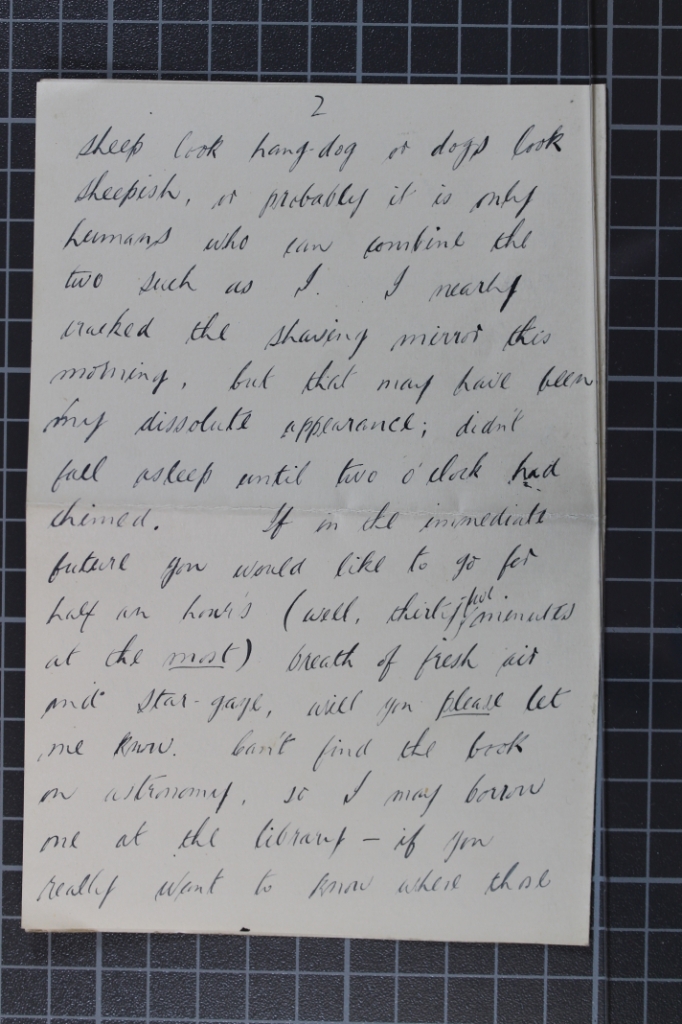 2
sheep look hang-dog or dogs look
sheepish, or probably it is only
humans who can combine the
two such as I. I nearly
cracked the shaving mirror this
morning, but that may have been
my dissolute appearance; didn't
fall asleep until two o'clock had
chimed. If in the immediate
future you would like to go for
half an hour's (well, thirty-five minutes
at the most) breath of fresh air
and star-gaze, will you please let
me know. Can't find the book
on astronomy, so I may borrow
one at the library – if you
really want to know where those